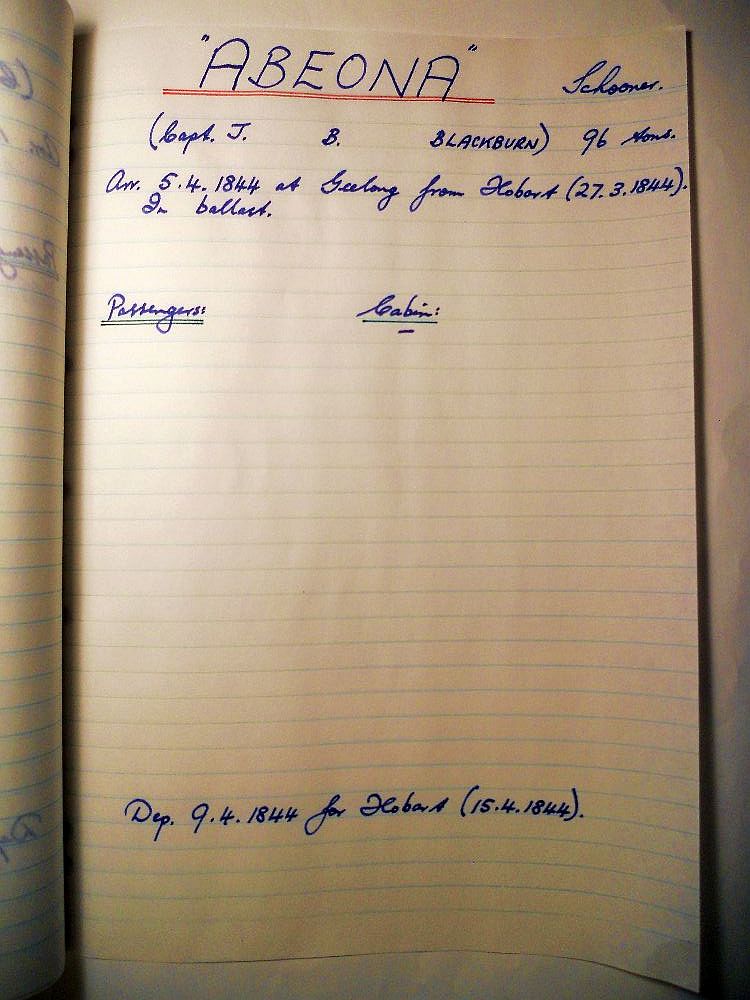 "ABEONA" Schooner.
(Capt. J. B. BLACKBURN) 96 tons.
Arr. 5.4.1844 at Geelong from Hobart (27.3.1844).
In ballast.
Passengers: Cabin:
—
Dep. 9.4.1844 for Hobart (15.4.1844).